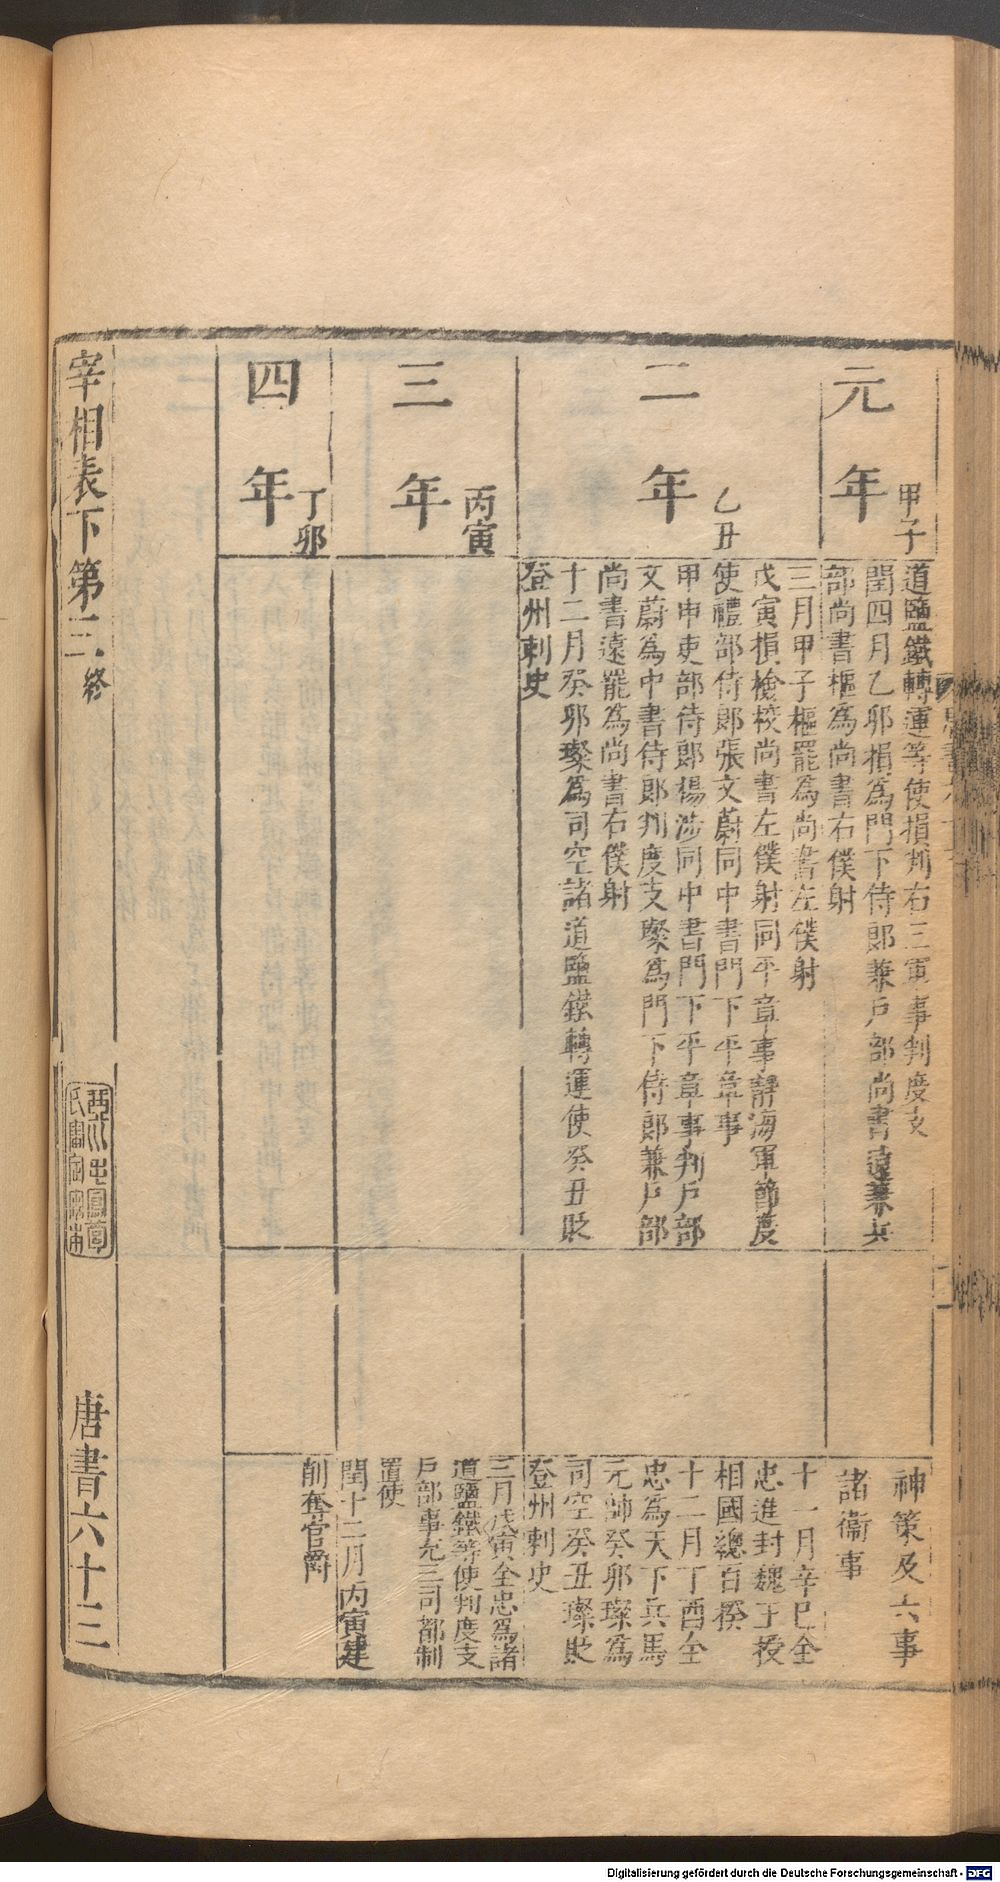 元年 甲子
道鹽鐵轉運等使損判右三軍事判度支
閏四月乙卯損為門下侍郎兼戶部尚書遠兼兵
部尚書樞為尚書右僕射
神策及六事
諸衞事
二年 乙丑
三月甲子樞罷為尚書左僕射
戊寅損檢校尚書左僕射同平章事靜海軍節度
使禮部侍郎張文蔚同中書門下平章事
甲申吏部侍郎楊涉同中書門下平章事判戶部
文蔚為中書侍郎判度支璨為門下侍郎兼戶部
尚書遠罷為尚書右僕射
十二月癸卯璨為司空諸道鹽鐵轉運使癸丑貶
登州刺史
十一月辛巳全
忠進封魏王授
相國總百揆
十二月丁酉全
忠為天下兵馬
元帥癸卯璨為
司空癸丑璨貶
登州刺史
三年 丙寅
三月戊寅全忠為諸
道鹽鐵等使判度支
戶部事充三司都制
置使
閏十二月丙寅建
削奪官爵
四年 丁卯
宰相表下第三 終
唐書六十三
Digitalisierung gefördert durch die Deutsche Forschungsgemeinschaft - DFG